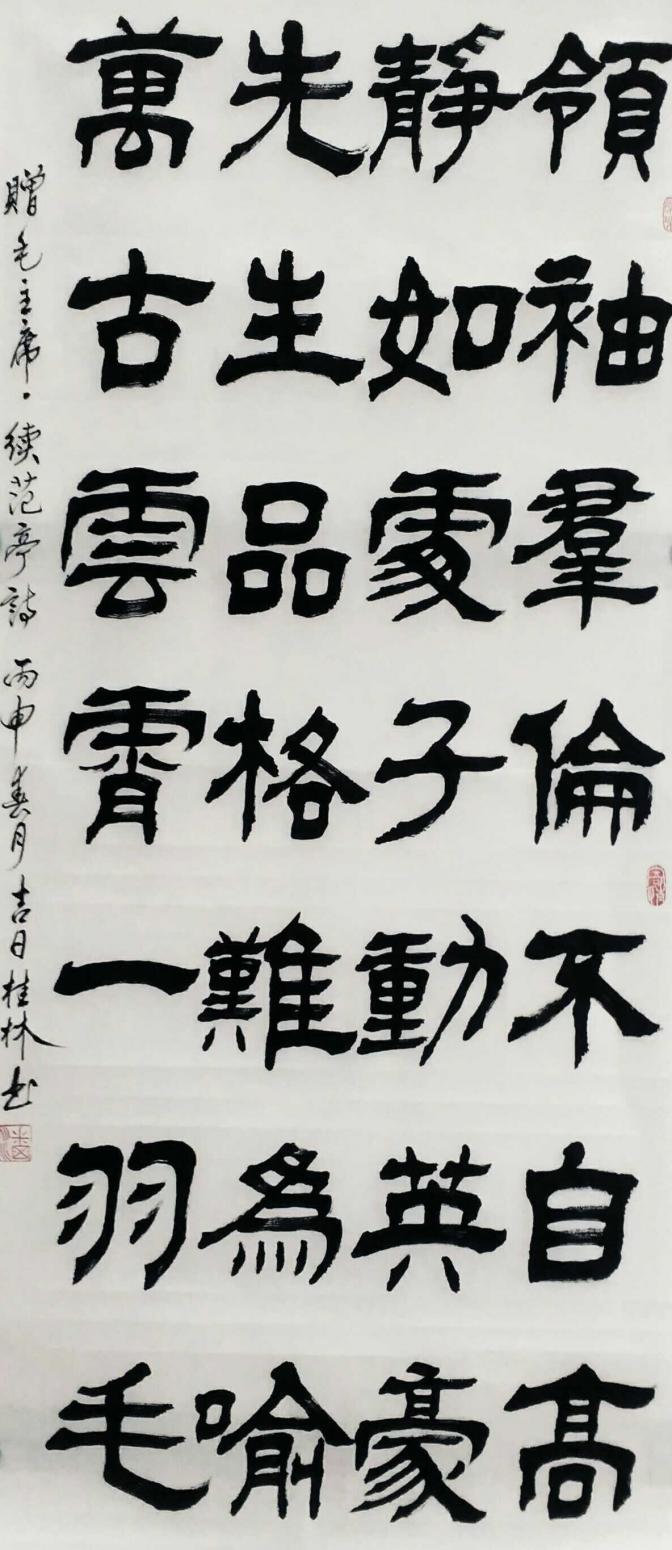 領袖羣倫不自高
靜如處子動英豪
先生品格難為喻
萬古雲霄一羽毛
贈毛主席·续范亭詩 丙申春月吉日桂林书